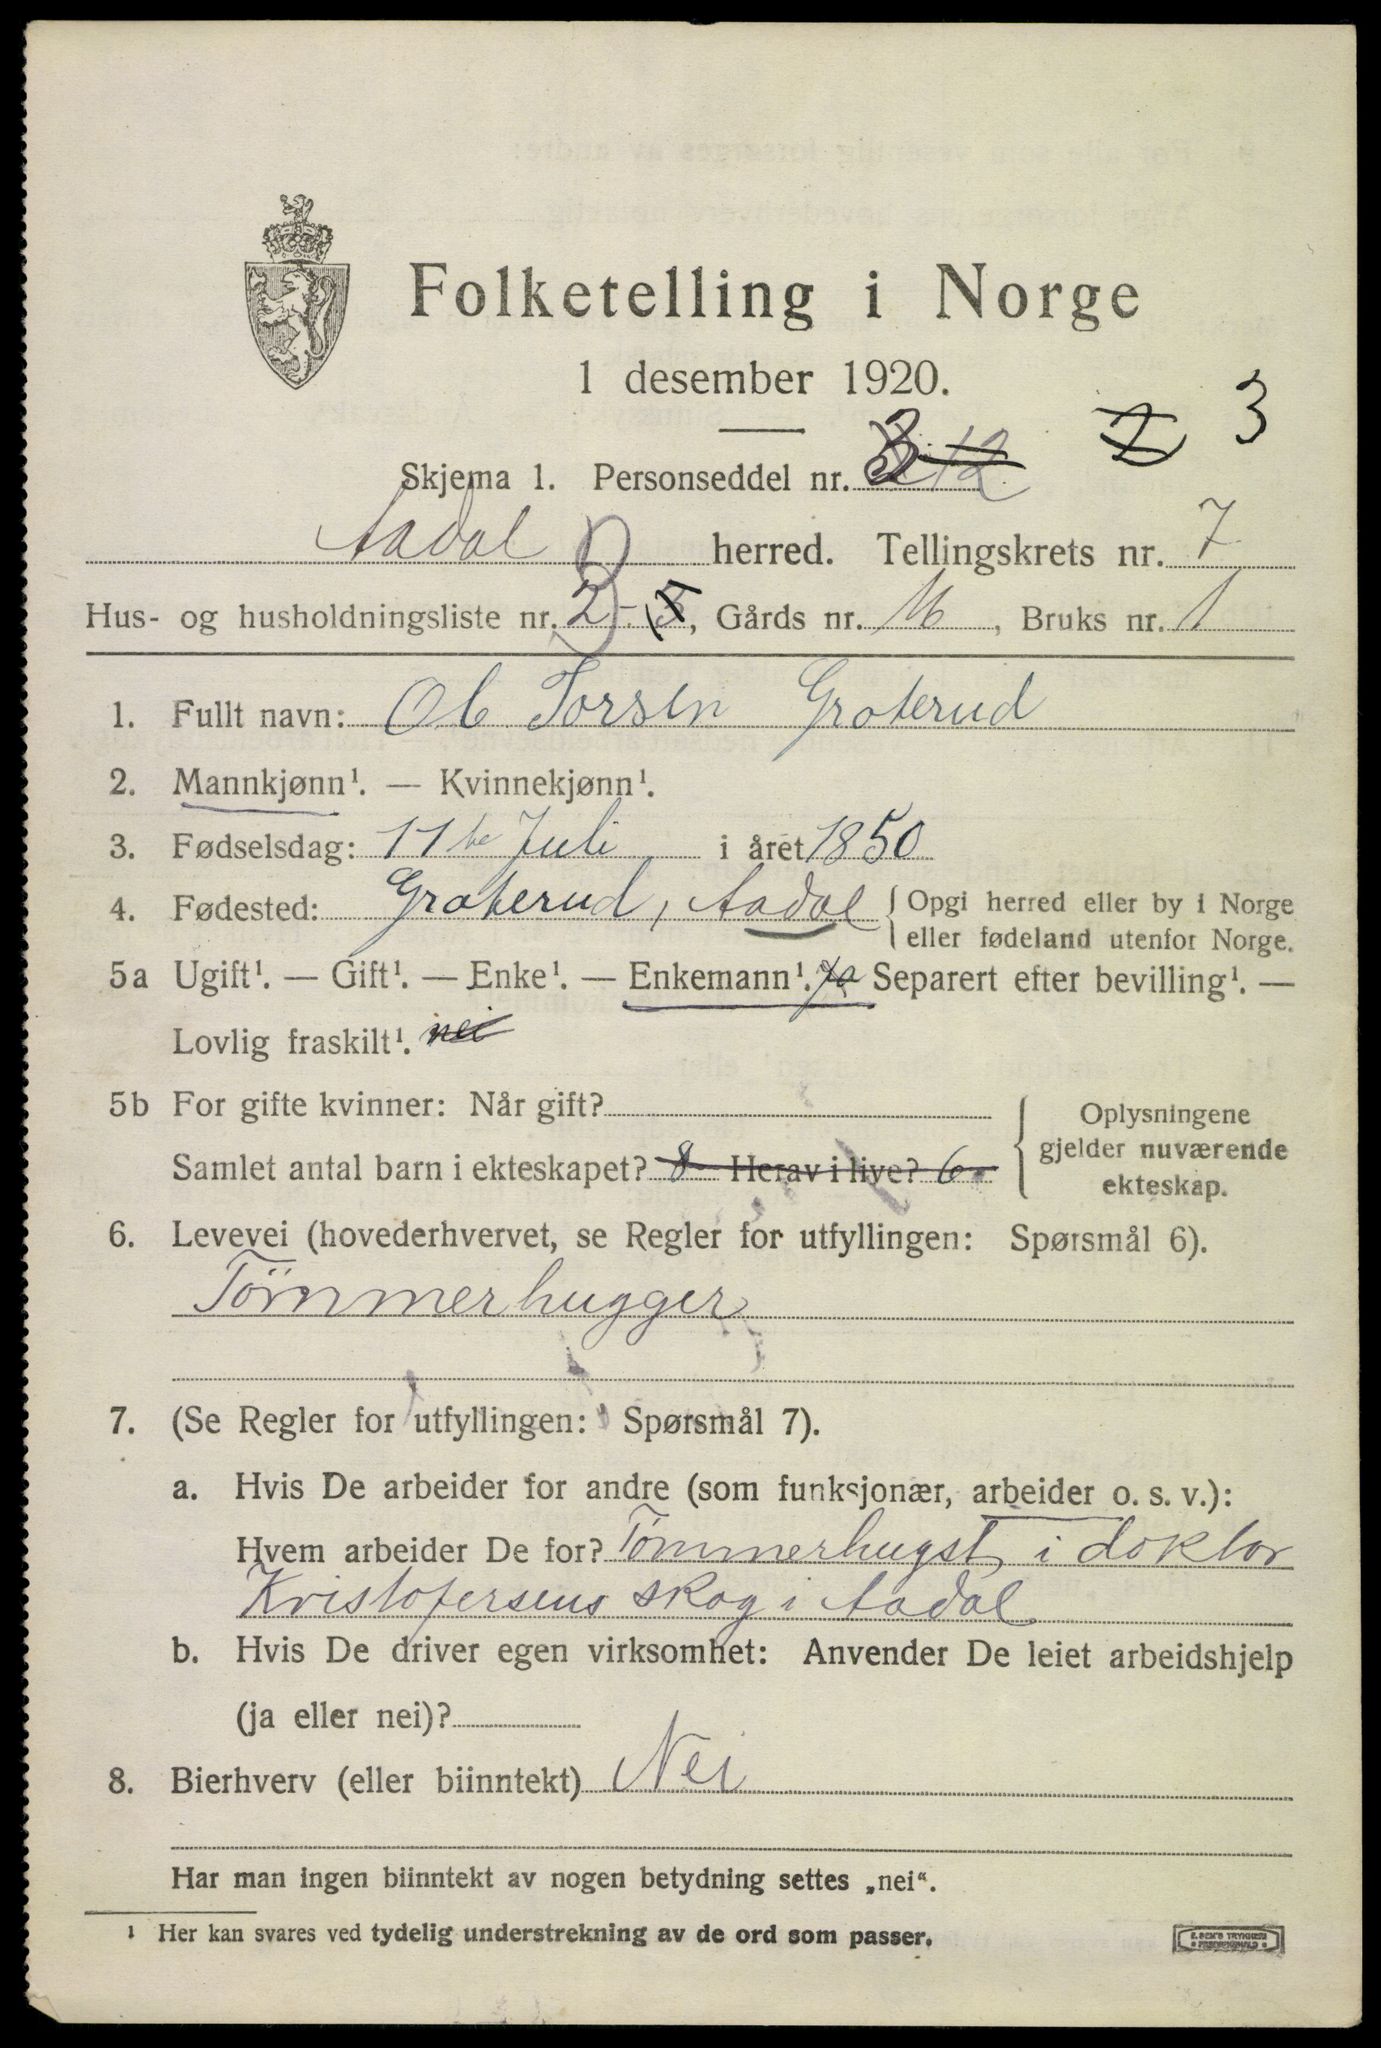 Folketelling i Norge
1 desember 1920.
3
Skjema 1. Personseddel nr. 3 12 2
Aadal herred. Tellingskrets nr. 7
Hus- og husholdningsliste nr. 2 - 3, Gårds nr. Bruks nr. 1
1. Fullt navn: Ole Torsen Groterud
2. Mannkjønn¹. — Kvinnekjønn¹.
3. Fødselsdag: 11te Juli i året 1850
4. Fødested: Groterud, Aadal { Opgi herred eller by i Norge
eller fødeland utenfor Norge.
5a Ugift¹. — Gift¹. — Enke¹. — Enkemann¹. ja Separert efter bevilling¹. —
Lovlig fraskilt¹. nei
5b For gifte kvinner: Når gift?
Samlet antal barn i ekteskapet? 8 Herav i live? 6
{ Oplysningene
gjelder nuværende
ekteskap.
6. Levevei (hovederhvervet, se Regler for utfyllingen: Spørsmål 6).
Tömmerhugger
7. (Se Regler for utfyllingen: Spørsmål 7).
a. Hvis De arbeider for andre (som funksjonær, arbeider o. s. v.):
Hvem arbeider De for? Tömmerhugst i doktor
Kristofersens skog i Aadal
b. Hvis De driver egen virksomhet: Anvender De leiet arbeidshjelp
(ja eller nei)?
8. Bierhverv (eller biinntekt) Nei
Har man ingen biinntekt av nogen betydning settes „nei“.
¹ Her kan svares ved tydelig understrekning av de ord som passer.
E. SEM'S TRYKKERI
FREDRIKSHALD